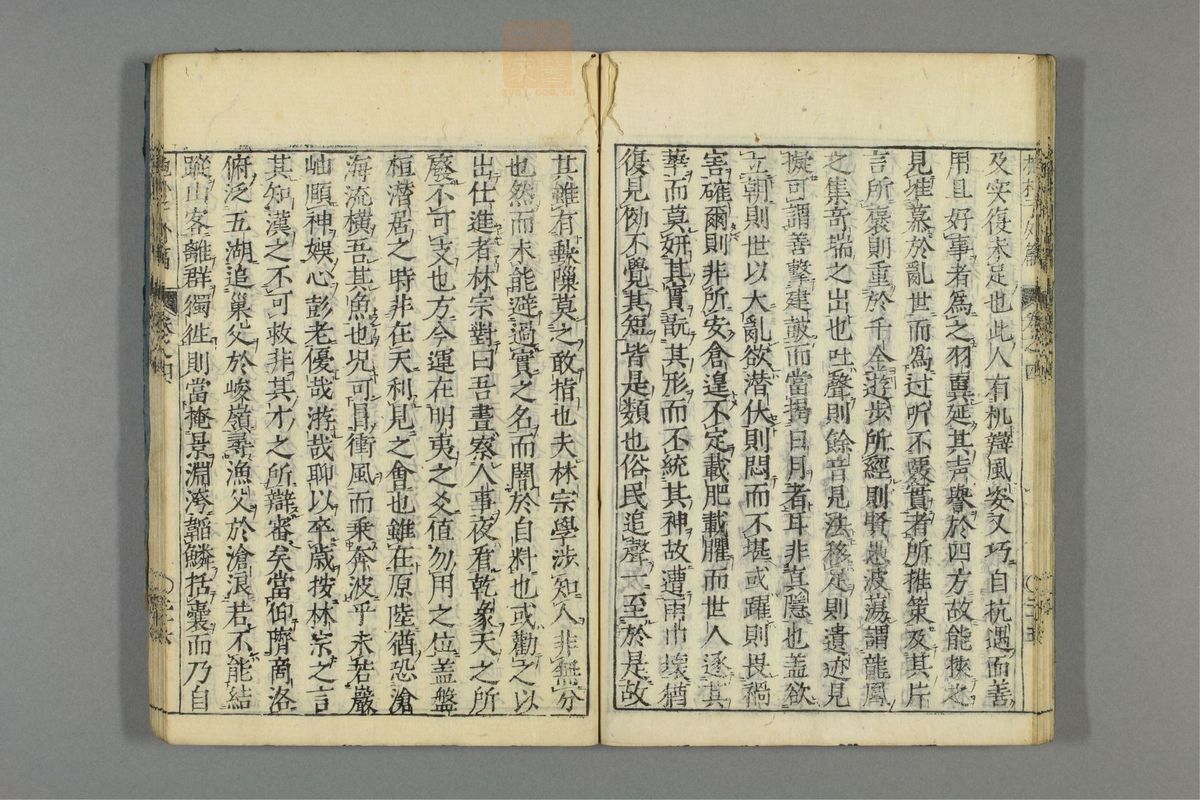 及安復未足也此人有机辯風姿又巧自抗遇而善
用且好事者為之羽翼延其声譽於四方故能挾之
見准慕於亂世而為过听不覈實者所推策及其片
言所褒則重於千金遊步所經則賢愚波蕩謂龍鳳
之集奇瑞之出也吐聲則餘音見法移足則遺迹見
擬可謂善擊建皷而當揭日月者耳非真隱也盖欲
立朝則世以大亂欲潜伏則悶而不堪或躍則畏禍
害確爾則非所安倉遑不定載肥載臞而世人逐其
華而莫妍其實翫其形而不統其神故遭雨巾壞猶
復見効不覺其短皆是類也俗民追聲一至於是故
其雖有缺隟莫之敢指也夫林宗學涉知人非無分
也然而未能避過實之名而闇於自料也或勸之以
出仕進者林宗對曰吾晝察人事夜看乾象天之所
廢不可支也方今運在明夷之爻值勿用之位盖盤
桓潜居之時非在天利見之會也雖在原陸猶恐滄
海流橫吾其魚也况可冒衝風而乘奔波乎未若巖
岫頤神娛心彭老優哉游哉聊以卒歳按林宗之言
其知漢之不可救非其才之所辯審矣當仰隮商洛
俯泛五湖追巢父於峻嶺尋漁父於滄浪若不能結
蹤山客離群獨徃則當掩景淵洿韜鱗括囊而乃自
卷之四